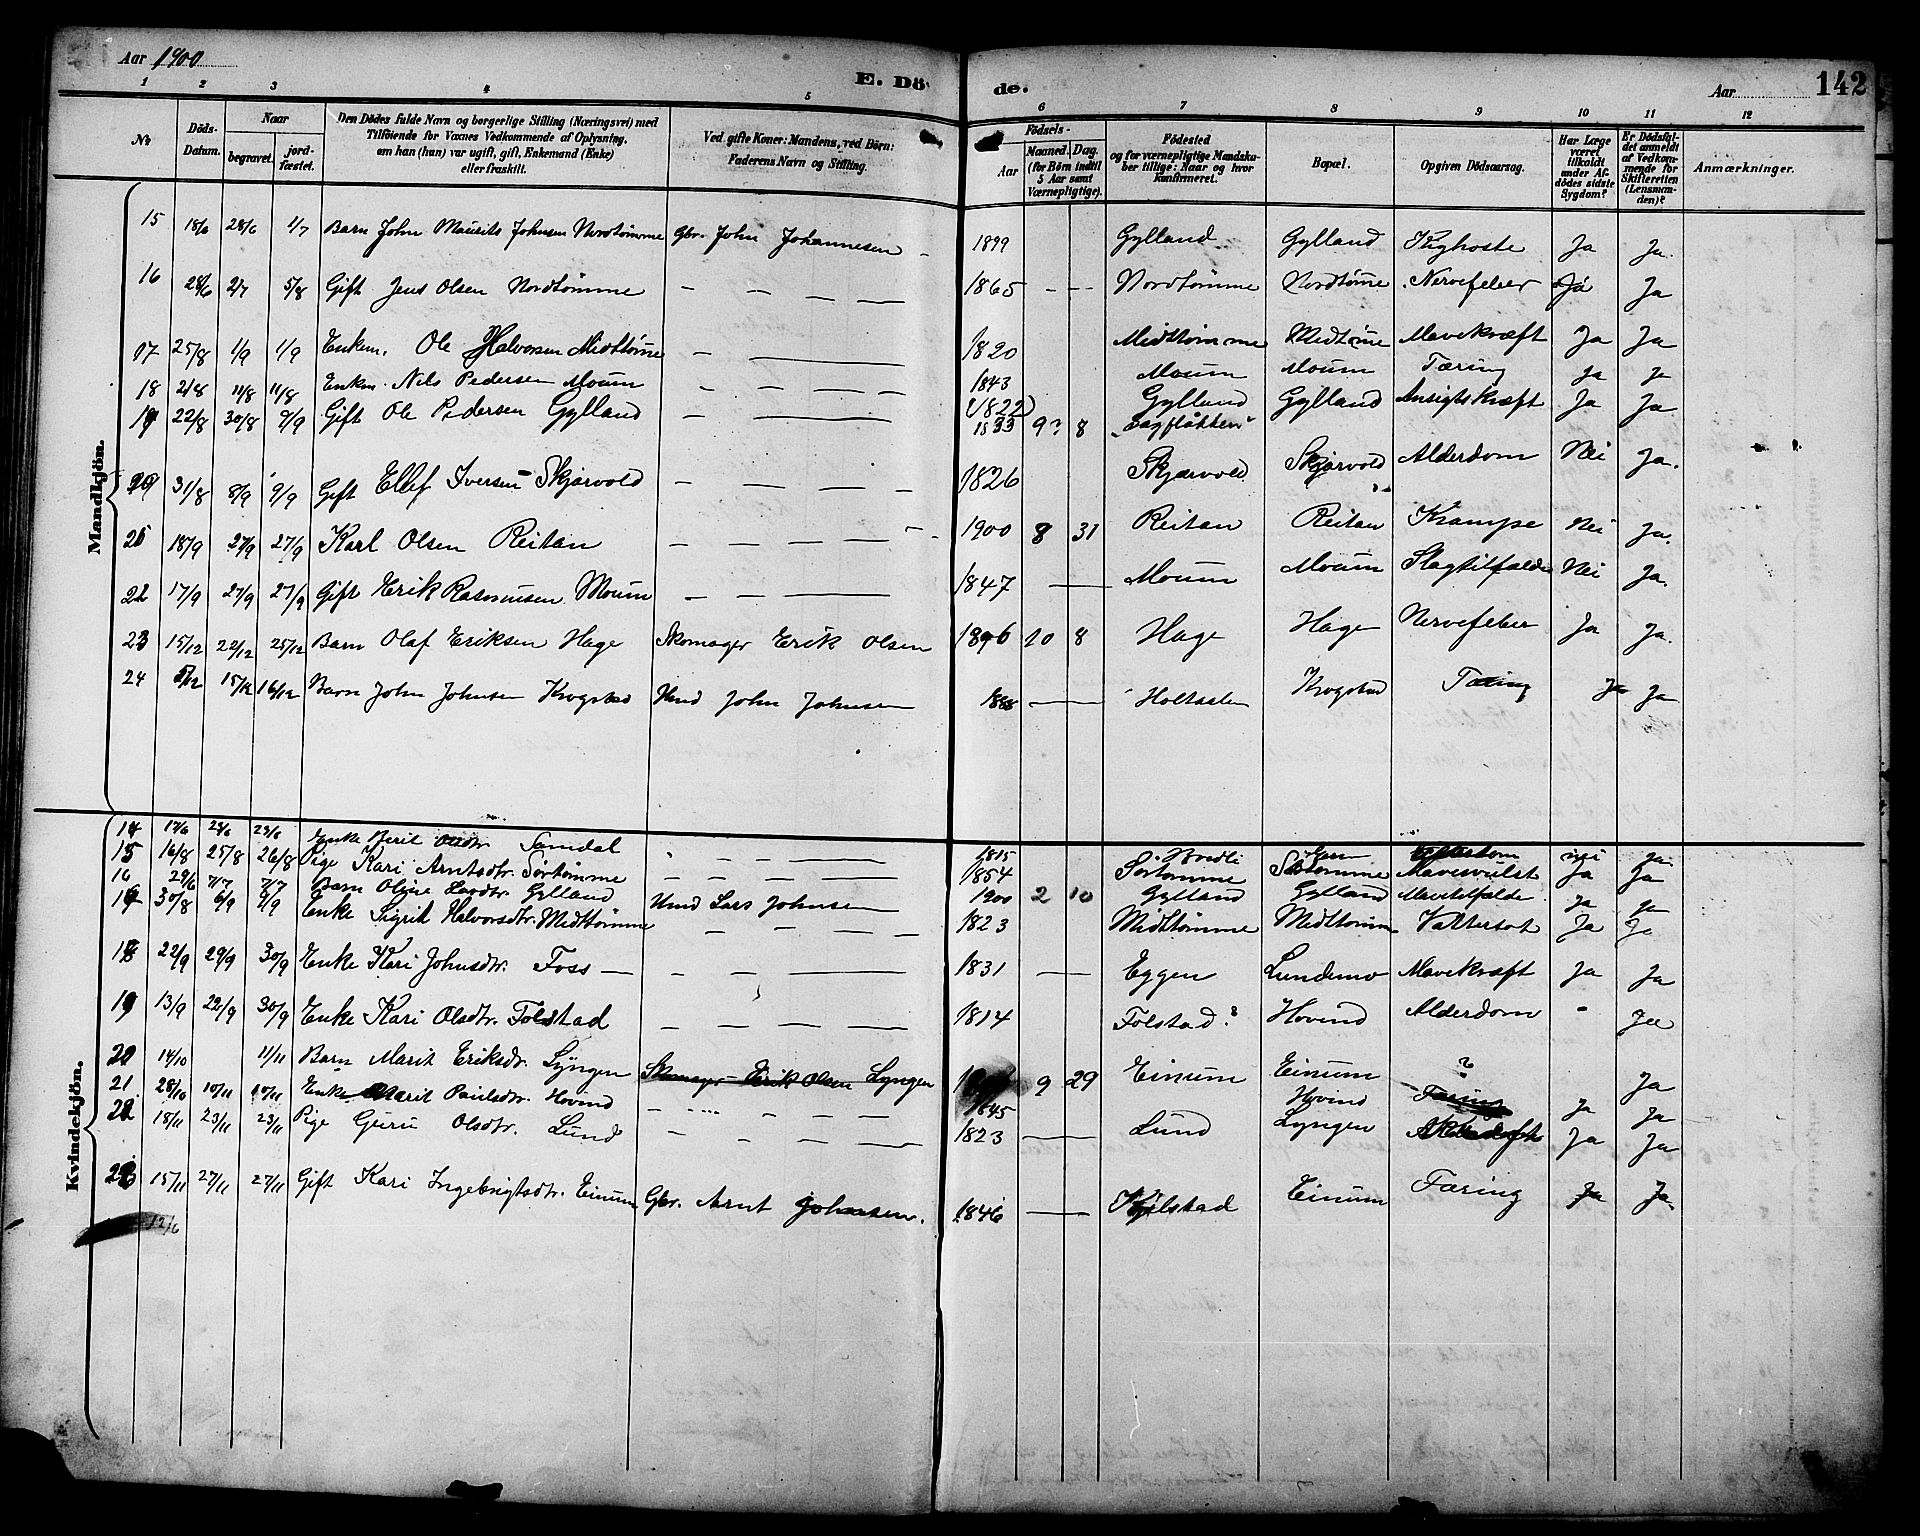 Aar 1900
E. Dö
de.
Aar
142
1 2 3 4 5 6 7 8 9 10 11 12
No
Döds-Datum.
Naar
begravet.
jordfæstet.
Den Dödes fulde Navn og borgerlige Stilling (Næringsvei) med Tilföiende for Voxnes Vedkommende af Oplysning, om han (hun) var ugift, gift, Enkemand (Enke) eller fraskilt.
Ved gifte Koner: Mandens, ved Börn: Faderens Navn og Stilling.
Födsels-
Aar
Maaned. Dag.
(for Börn indtil 5 Aar samt Værnepligtige).
Födested og for værnepligtige Mandskaber tillige: Naar og hvor konfirmeret.
Bopæl.
Opgiven Dödsaarsag.
Har Læge været tilkaldt under Afdödes sidste Sygdom?
Er Dödsfaldet anmeldt af Vedkommende for Skifteretten (Lensmanden)?
Anmærkninger.
Mandkjön.
15 18/6 28/6 1/7 Barn John Maurits Johnsen Nordtømme Gbr. John Johannesen 1899 Gylland Gylland Kighoste Ja Ja.
16 28/6 2/7 5/8 Gift Jens Olsen Nordtømme — — — — 1865 - - - Nordtømme Nordtømme Nervefeber Ja Ja
17 25/8 1/9 1/9 Enkem. Ole Halvorsen Midttømme — 1820 Midttømme Midtømme Mavekræft Ja Ja
18 2/8 11/8 11/8 Enkm. Nils Pedersen Moum — — — — 1843 Moum Moum Tæring Ja Ja
19 22/8 30/8 9/9 Gift Ole Pedersen Gylland — (1822) 1833 9? 8 Gylland Gylland Ansigtskræft Ja Ja
20 31/8 8/9 9/9 Gift Ellef Iversen Skjærvold — — — — 1826 Skjærvold Skjærvold Alderdom Nei Ja.
21 18/9 27/9 27/9 Karl Olsen Reitan — — — — 1900 8 31 Reitan Reitan Krampe Nei Ja.
22 17/9 27/9 27/9 Gift Erik Rasmusen Moum — — — 1847 — Moum Moum Slagtilfælde Nei Ja.
23 15/12 22/12 25/12 Barn Olaf Eriksen Hage Skomager Erik Olsen 1896 10 8 Hage Hage Nervefeber Ja Ja.
24 5/12 15/12 16/12 Barn John Johnsen Krogstad Hmd John Johnsen 1888 — Holtaalen Krogstad Tæring Ja Ja
Kvindekjön.
14 17/6 23/6 23/6 Enke Berit Olsdtr. Samdal 1815 Hordli nei Ja
15 16/8 25/8 26/8 Pige Kari Arntsdtr. Sørtømme — — — 1854 Sørtømme Sørtømme Mavesvulst Ja Ja
16 29/6 7/7 7/7 Barn Oline Larsdtr. Gylland Hmd Lars Johnsen 1900 2 10 Gylland Gylland Mavetilfælde Ja Ja
17 30/8 6/9 9/9 Enke Sigrid Halvorsdtr. Midttømme — — — — 1823 Midttømme Midttømme Vattersot Ja Ja
18 22/9 29/9 30/9 Enke Kari Johnsdtr. Foss — — — — 1831 — Eggen Lundemo Mavekræft Ja Ja
19 13/9 22/9 30/9 Enke Kari Olsdtr. Folstad — — — — 1814 Folstad? Hovind Alderdom " Ja
20 14/10 11/11 Barn Marit Eriksdtr. Lyngen Skomager Erik Olsen Lyngen 9 29 Einum Einum ? Ja
21 28/10 10/11 10/11 Enke Marit Paulsdtr. Hovind — 1845 Hovind Tæring Ja Ja
22 18/11 23/11 23/11 Pige Guru Olsdtr. Lund — — — — 1823 — Lund Lyngen Ja Ja
23 15/11 27/11 27/11 Gift Kari Ingebrigtsdtr. Einum Gbr. Arnt Johnsen. 1846 — Kjelstad Einum Tæring Ja Ja.
12/6